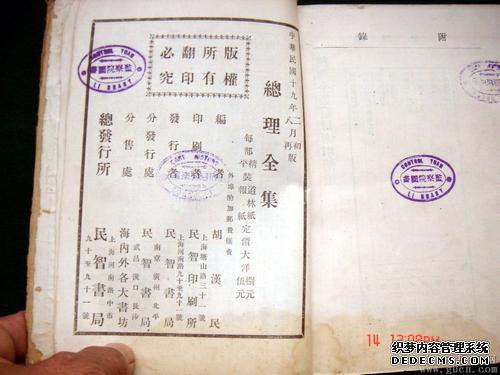 附錄
中華民國十九年二月初版
八月再版
總理全集
每部精裝道林紙定價大洋捌元
平裝報紙 伍元
外埠酌加郵費匯費
版權所有
翻印必究
編者 胡漢民
印刷者 民智印刷所
上海塘山路三十一號
發行者 民智書局
上海河南路九十至九十一號
分發行所 民智書局
南京 廣州 北平
武昌 漢口 長沙
分售處 海內外各大書坊
總發行所 民智書局
上海河南路中市
九十至九十一號
CONTROL YUAN
監察院圖書
LIBRARY
CONTROL YUAN
監察院圖書
LIBRARY
14
织梦内容管理系统
http://www.gucn.com